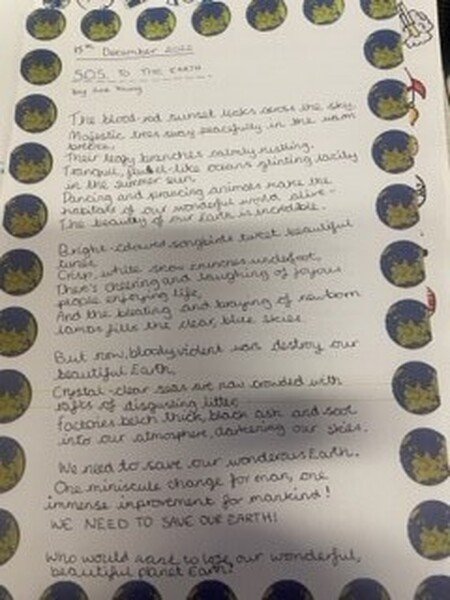 15th December 2022
SOS TO THE EARTH
The blood-red sunset leaks across the sky,
Majestic trees sway peacefully in the warm
breeze,
Their leafy branches calmly rustling.
Tranquil, -like oceans glinting lazily
in the summer sun.
Dancing and prancing animals make the
habitats of our wonderful world alive -
The beauty of our Earth is incredible.
Bright-coloured songbirds tweet beautiful
tunes,
Crisp, white snow crunches underfoot,
There's cheering and laughing of joyous
people enjoying life,
And the bleating and braying of newborn
lambs fills the clear, blue skies.
But now, bloody, violent wars destroy our
beautiful Earth,
Crystal-clear seas are now crowded with
rafts of disgusting litter,
Factories belch thick, black ash and soot
into our atmosphere, darkening our skies.
We need to save our wonderous Earth.
One miniscule change for man, one
immense improvement for mankind!
WE NEED TO SAVE OUR EARTH!
Who would want to lose our wonderful,
beautiful planet Earth?